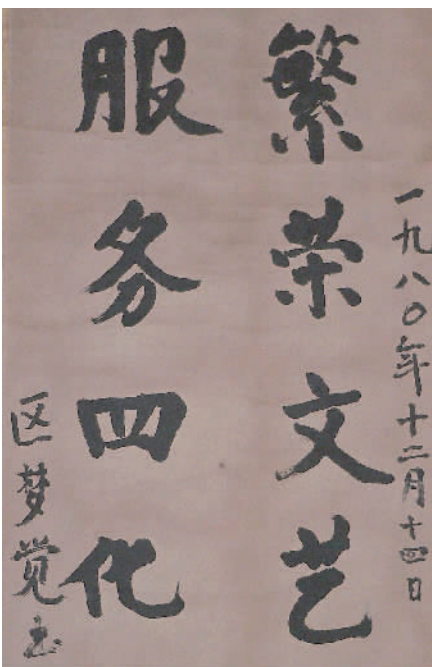 一九八〇年十二月十四日
繁荣文艺
服务四化
区梦觉书